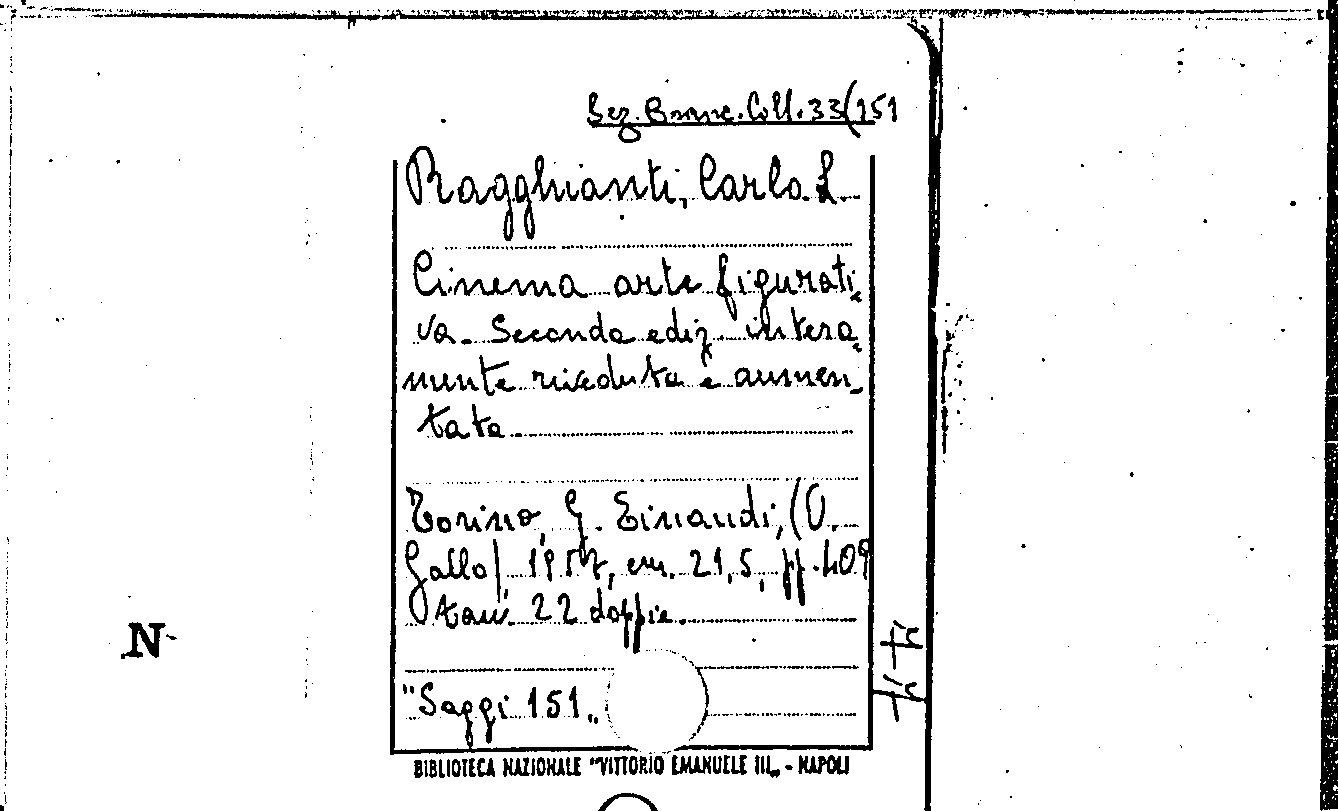 Sez. Branc. Coll. 33(151
Ragghianti, Carlo L.
Cinema arte figurati-
va. Seconda ediz. intera-
mente riveduta e aumen-
tata.
Torino, G. Einaudi, (U.
Gallo) 1957, cm. 21,5, pp. 409
tav. 22 doppie.
N
"Saggi 151„
BIBLIOTECA NAZIONALE "VITTORIO EMANUELE III„ - NAPOLI